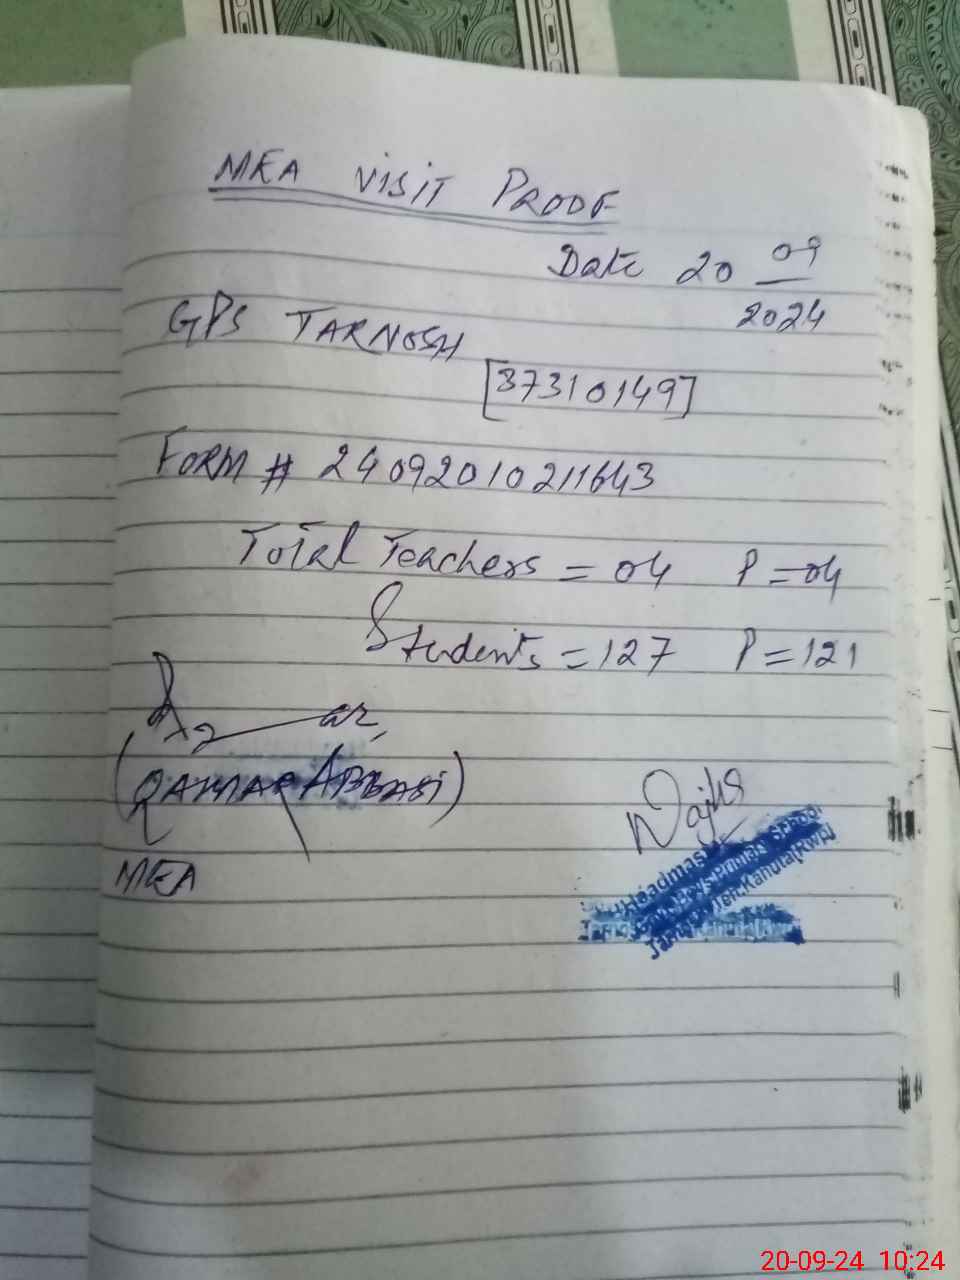 MEA VISIT PROOF
Date 20 09
2024
GPS TARNOSH
[37310149]
FORM # 24092010211643
Total Teachers = 04 P = 04
Students = 127 P = 121
(QAMAR ABBASI)
MEA
Headmas
Boys Primary School
Teh: Kahuta (Rwp)
20-09-24 10:24